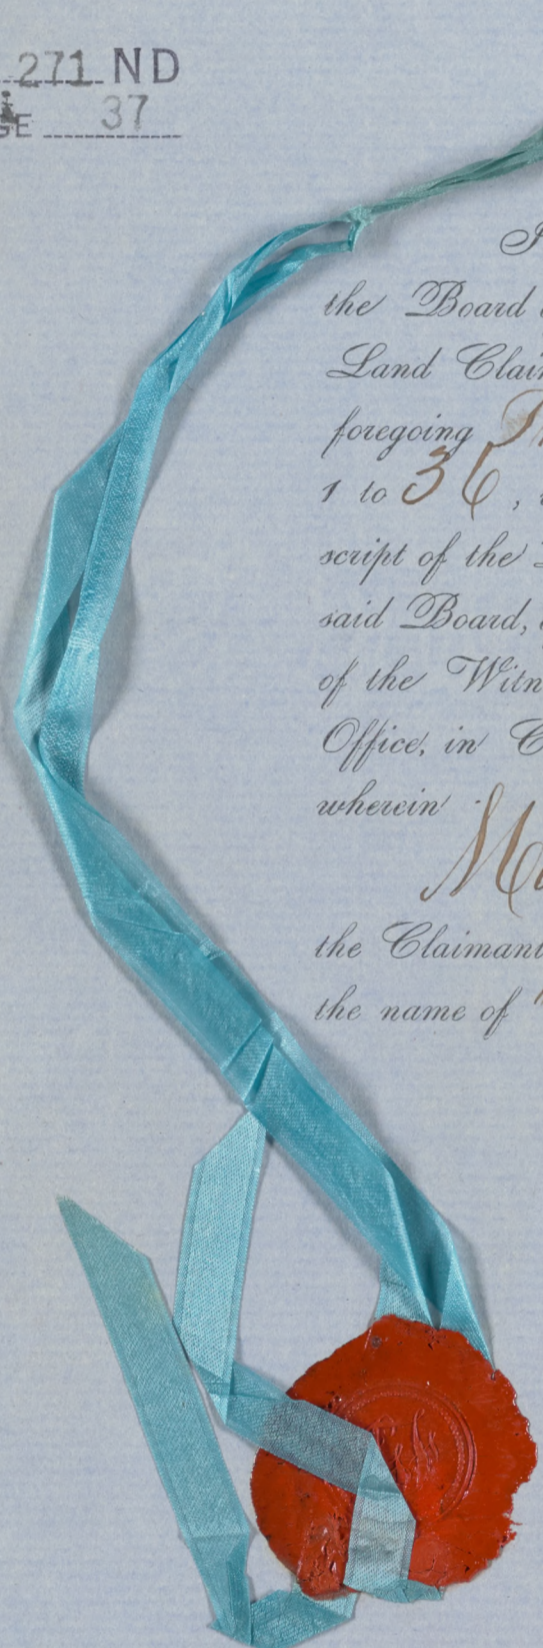 271 ND
GE 37
the Board
Land Clai
foregoing
1 to 36,
script of the
said Board,
of the Witn
Office, in C
wherein
M
the Claimant
the name of